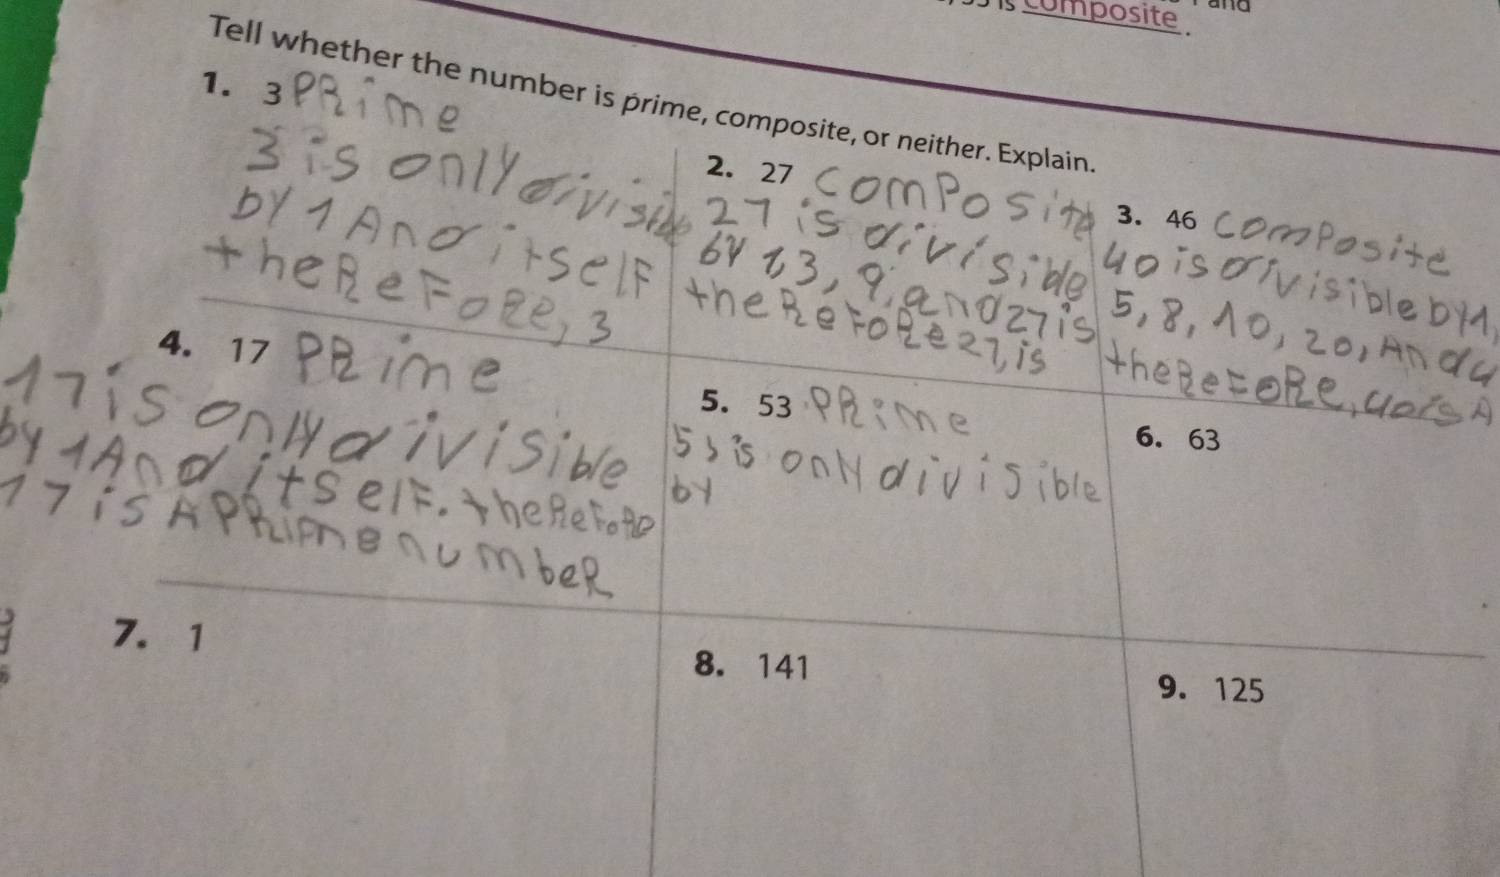 is composite.
and
Tell whether the number is prime, composite, or neither. Explain.
1. 3 PRime
3 is only divisible
by 1 And itself
theReFoRe, 3
2. 27 composite
27 is divisible
by 1,3, 9, and 27 is
theReFoRe 27, is
3. 46 composite
40 is divisible by 1,
5, 8, 10, 20, And 4
theReFoRe, 40 is A
4. 17 PRime
17 is only divisible
by 1 And itselF. theReFoRe
17 is A PRime numbeR
5. 53 PRime
53 is only divisible
by
6. 63
7. 1
8. 141
9. 125